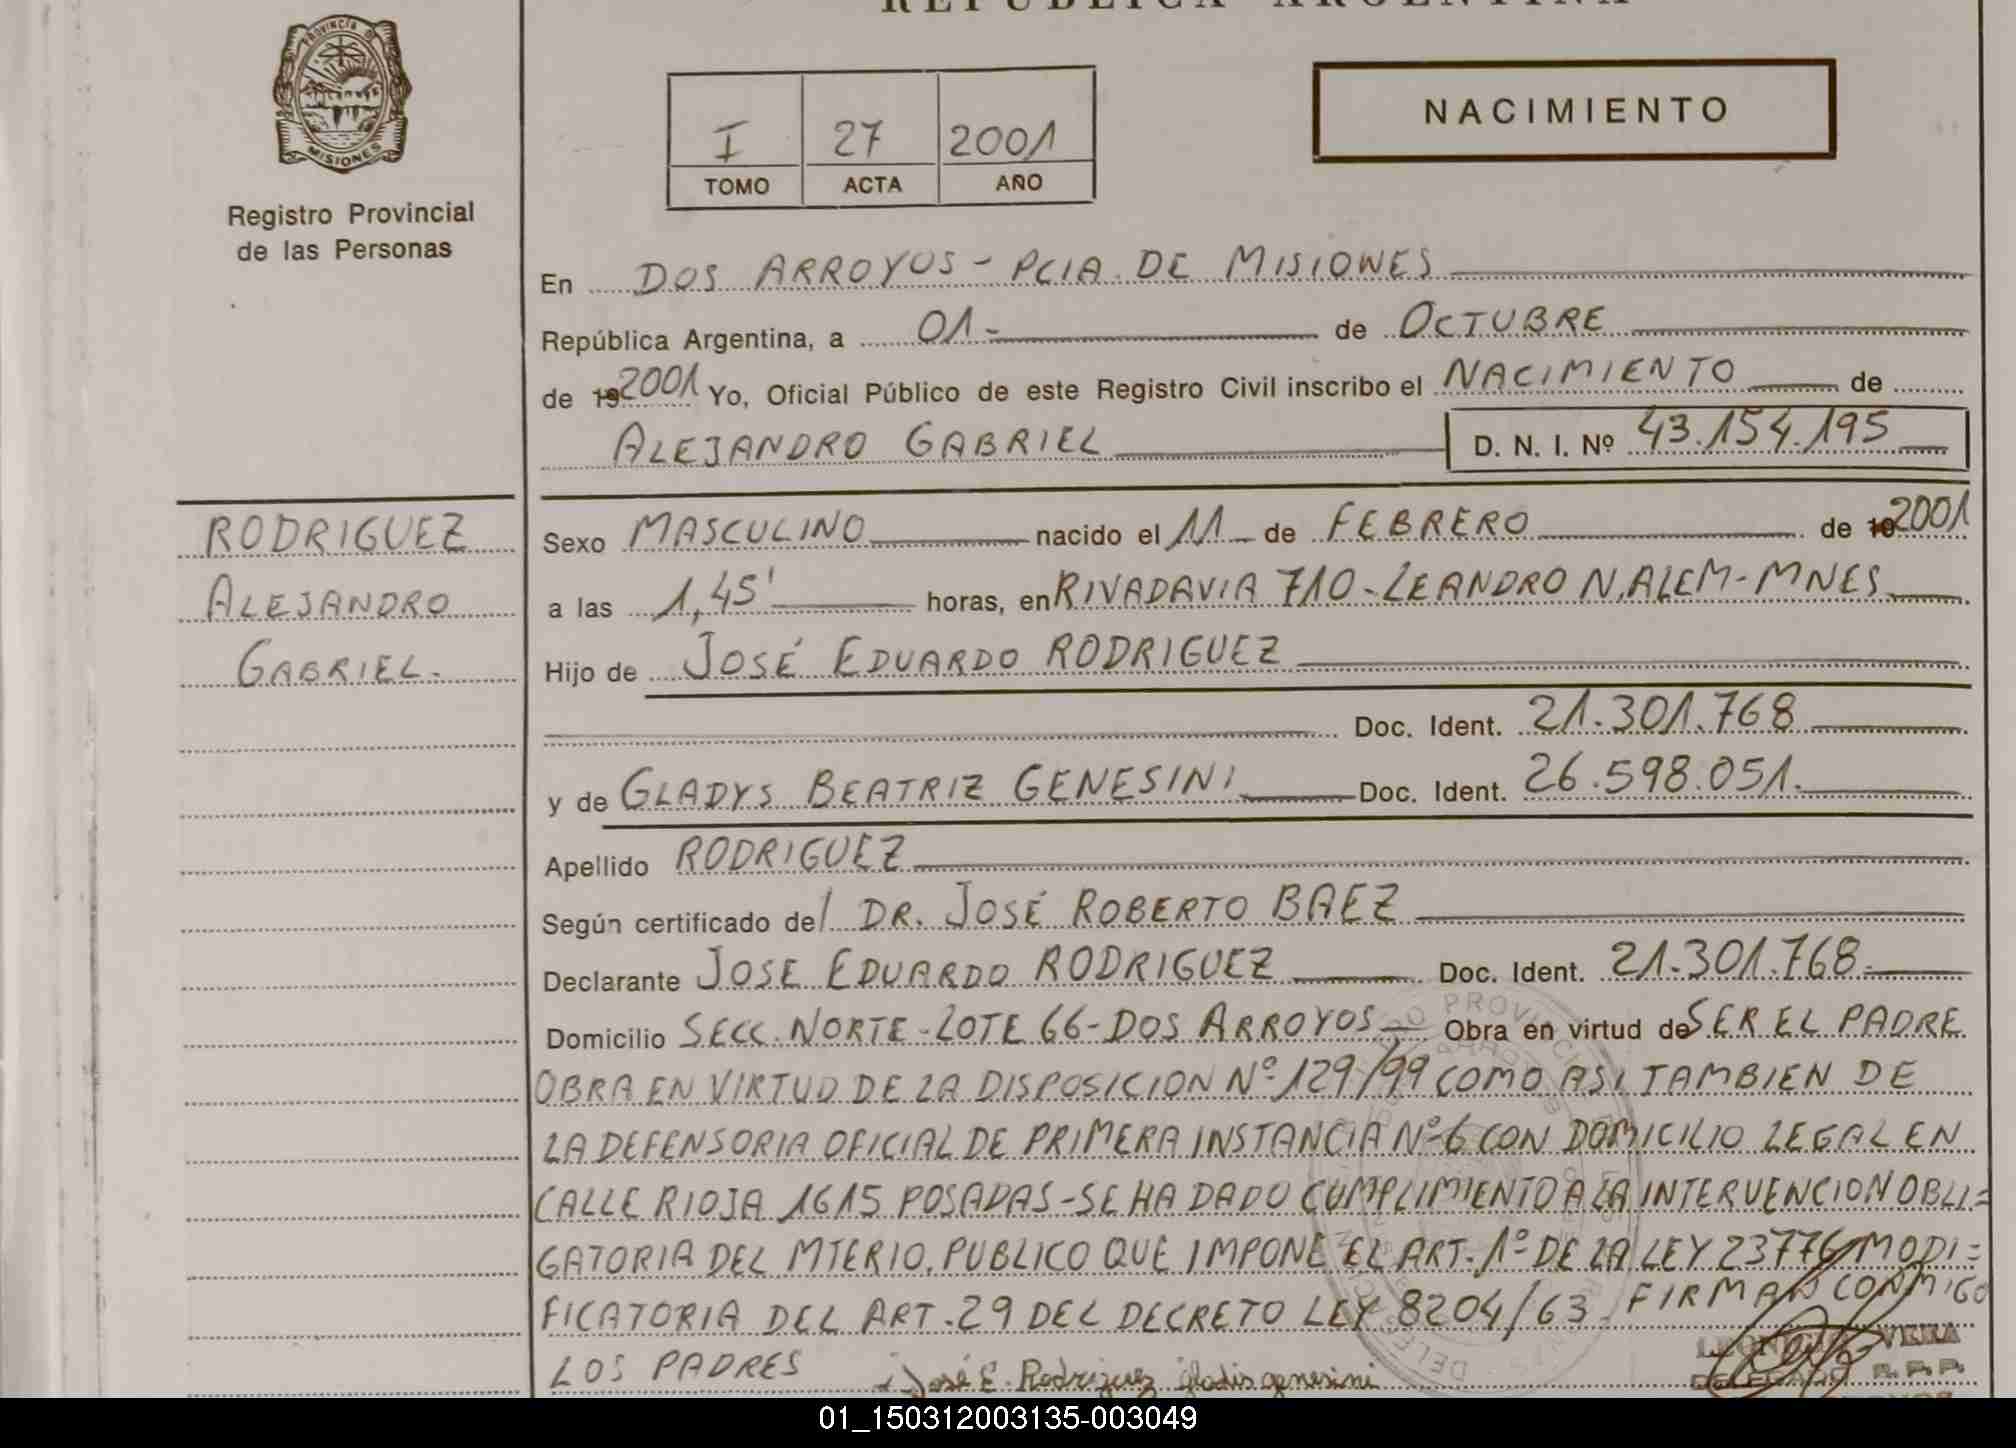 REPUBLICA ARGENTINA
PROVINCIA D
MISIONES
Registro Provincial
de las Personas
I 27 2001
TOMO ACTA AÑO
NACIMIENTO
En DOS ARROYOS - PCIA. DE MISIONES
República Argentina, a 01.- de OCTUBRE
de 19 2001 Yo, Oficial Público de este Registro Civil inscribo el NACIMIENTO de
ALEJANDRO GABRIEL D. N. I. Nº 43.154.195
RODRIGUEZ
ALEJANDRO
GABRIEL.
Sexo MASCULINO nacido el 11 de FEBRERO de 19 2001
a las 1,45' horas, en RIVADAVIA 710 - LEANDRO N. ALEM - MNES
Hijo de JOSÉ EDUARDO RODRIGUEZ
Doc. Ident. 21.301.768
y de GLADYS BEATRIZ GENESINI Doc. Ident. 26.598.051.
Apellido RODRIGUEZ
Según certificado del DR. JOSÉ ROBERTO BAEZ
Declarante JOSE EDUARDO RODRIGUEZ Doc. Ident. 21.301.768.
Domicilio SECC. NORTE - LOTE 66 - DOS ARROYOS Obra en virtud de SER EL PADRE.
OBRA EN VIRTUD DE LA DISPOSICION Nº 129/99 COMO ASI TAMBIEN DE
LA DEFENSORIA OFICIAL DE PRIMERA INSTANCIA Nº 6 CON DOMICILIO LEGAL EN
CALLE RIOJA 1615 POSADAS - SE HA DADO CUMPLIMIENTO A LA INTERVENCION OBLI=
GATORIA DEL MTERIO. PUBLICO QUE IMPONE EL ART. 1º DE LA LEY 23776 MODI=
FICATORIA DEL ART. 29 DEL DECRETO LEY 8204/63. FIRMAN CONMIGO
LOS PADRES José E. Rodriguez gladis genesini
VERA
DELEGADO R.P.P.
01_150312003135-003049